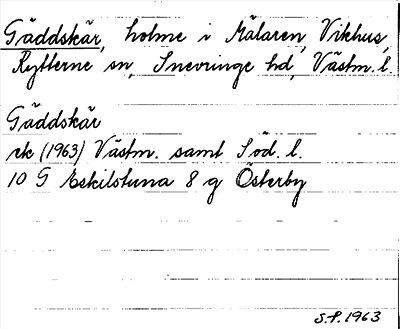 Gäddskär, holme i Mälaren, Vikhus,
Rytterne sn, Snevringe hd, Västm. l.
Gäddskär
ek (1963) Västm. samt Söd. l.
10 G Eskilstuna 8 g Österby
S.P. 1963